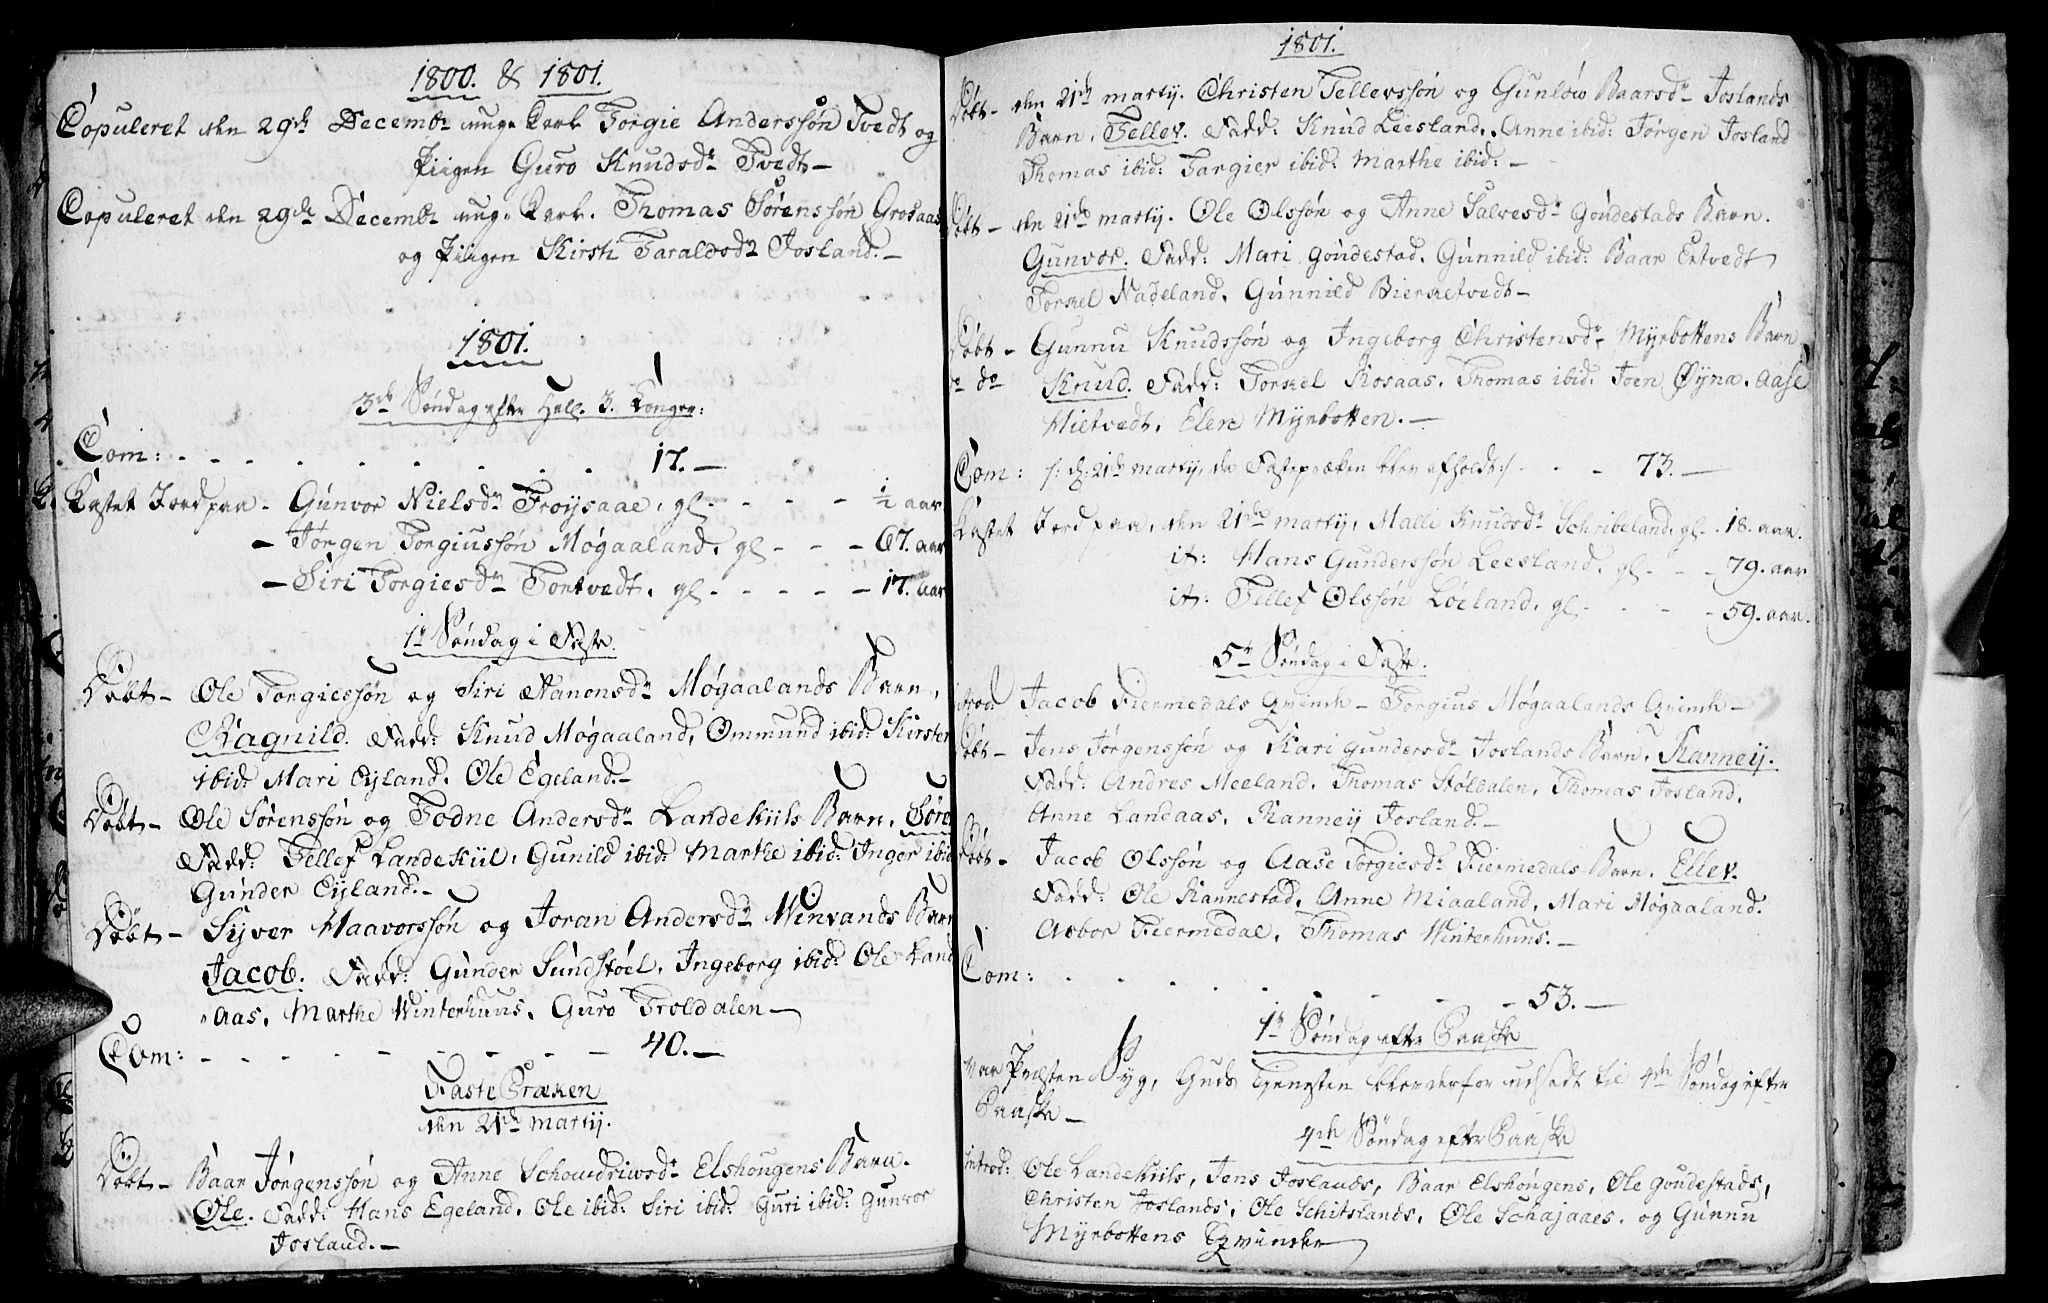 1800. & 1801.
Copuleret den 29de Decembr unge Karl Torgie Anderssøn Tvedt og
Piigen Guro Knudsdr Tvedt –
Copuleret den 29de Decembr unge Karl. Thomas Sørenssøn Grosaas
og Piigen Kirsti Taraldsdr Josland. –
1801.
3de Søndag efter Hell. 3. Konger:
Com: - - - - - - - - - 17. –
Kastet Jord paa - Gunvor Nielsdr Frøysaae, gl - - - - ½ aar
– Jørgen Torgiussøn Møgaaland, gl - - - 67. aar
– Siri Torgiesdr Tortvedt, gl - - - - - 17. aar
1te Søndag i Faste.
Døbt – Ole Torgiessøn og Siri Aanonsdr Møgaalands Barn,
Ragnild. Fadd: Knud Møgaaland, Ommund ibid: Kirsten
ibid: Mari Eyland, Ole Egeland. –
Døbt – Ole Sørenssøn og Todne Andersdr Landekiils Barn, Søre
Fadd: Tellef Landekiil, Gunild ibid: Marthe ibid: Inger ibid
Gunder Eyland. –
Døbt – Syver Haavorssøn og Joran Andersdr Winvands Barn
Jacob. Fadd: Gunder Sundstøel, Ingeborg ibid: Ole Land
aas, Marthe Winterhuus, Guro Troldalen –
Com: - - - - - - - - 40. –
Faste Præken
den 21de martij.
Døbt – Baar Jørgenssøn og Anne Elshougens Barn.
Ole. Fadd: Hans Egeland, Ole ibid: Siri ibid: Guri ibid: Gunvor
Josland. –
1801.
Døbt – den 21de martij. Christen Tellevssøn og Gunlow Baarsdr Joslands
Barn, Tellev. Fadd: Knud Leesland, Anne ibid: Jørgen Josland
Thomas ibid: Targier ibid: Marthe ibid: –
Døbt – den 21de martij. Ole Olssøn og Anne Salvesdr Goudestads Barn.
Gunvor. Fadd: Mari Goudestad, Gunnild ibid: Baar Ertvedt
Torkel Nadeland, Gunnild Bierketvedt –
Døbt – Gunnu Knudssøn og Ingeborg Christensdr Myrbottens Barn
do Knud. Fadd: Torkel Rosaas, Thomas ibid: Joen Øyna, Aase
Hietvedt, Elen Myrbotten. –
Com: /: d: 21de martij, da Fastepræken blev afholdt :/ - - - 73. –
Kastet Jord paa, den 21de martij, Malli Knudsdr Schribeland, gl - 18. aar.
it: Hans Gunderssøn Leesland, gl - - - 79. aar
it: Tellef Olssøn Løeland, gl - - - - 59. aar.
5te Søndag i Faste.
introd Jacob Fiermedals Qvinde – Torgius Møgaalands Qvinde –
Døbt – Jens Jørgenssøn og Kari Gundersdr Joslands Barn, Ranney.
Fadd: Andres Meeland, Thomas Støldalen, Thomas Josland,
Anne Landaas, Ranney Josland. –
Døbt – Jacob Olssøn og Aase Torgiesdr Fiermedals Barn, Ellev.
Fadd: Ole Rannestad, Anne Miaaland, Mari Møgaaland.
Asbor Fiermedal, Thomas Winterhuus. –
Com: - - - - - - - - 53. –
1te Søndag efter Paaske
var Præsten Syg, Guds Tjenesten blev derfor udsadt til 4de Søndag efter
Paaske –
4de Søndag efter Paaske
introd: Ole Landekiils, Jens Joslands, Baar Elshougens, Ole Goudestads,
Christen Joslands, Ole Schitslands, Ole Schajaaes, og Gunnu
Myrbottens Qvinder